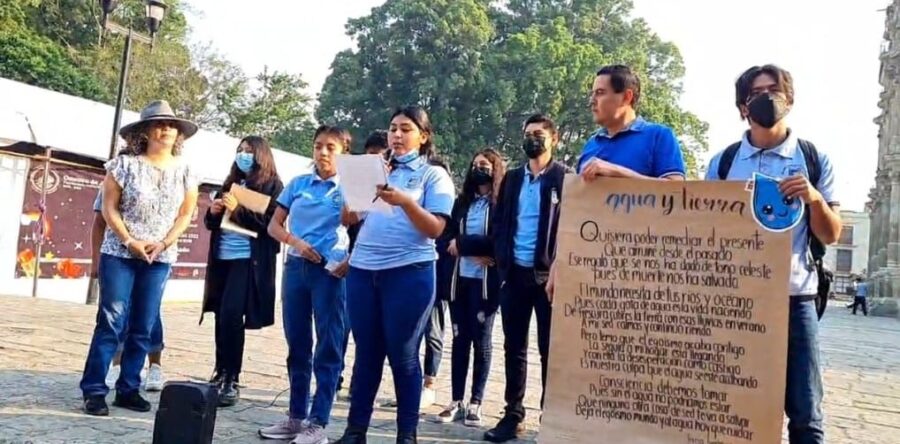 agua y tierra
Quisiera poder remediar el presente
Que arruine desde el pasado
Ese regalo que se nos ha dado de tono celeste
pues de muerte nos ha salvado.
El mundo necesita de tus rios y océano
Pues cada gota de agua esta vida naciendo
De frescura cubres la tierra con esas lluvias en verano
A mi sed calmas y continuo riendo
Pero temo que el egoísmo acaba contigo
La sequía a mi hogar esta llegando
Y con ella la desesperación como castigo
Es nuestra culpa que el agua se este acabando
Consciencia debemos tomar
Pues sin el agua no podríamos estar
Que ninguna otra cosa de sed te va a salvar
Deja el egoísmo mundo y al agua hay que cuidar